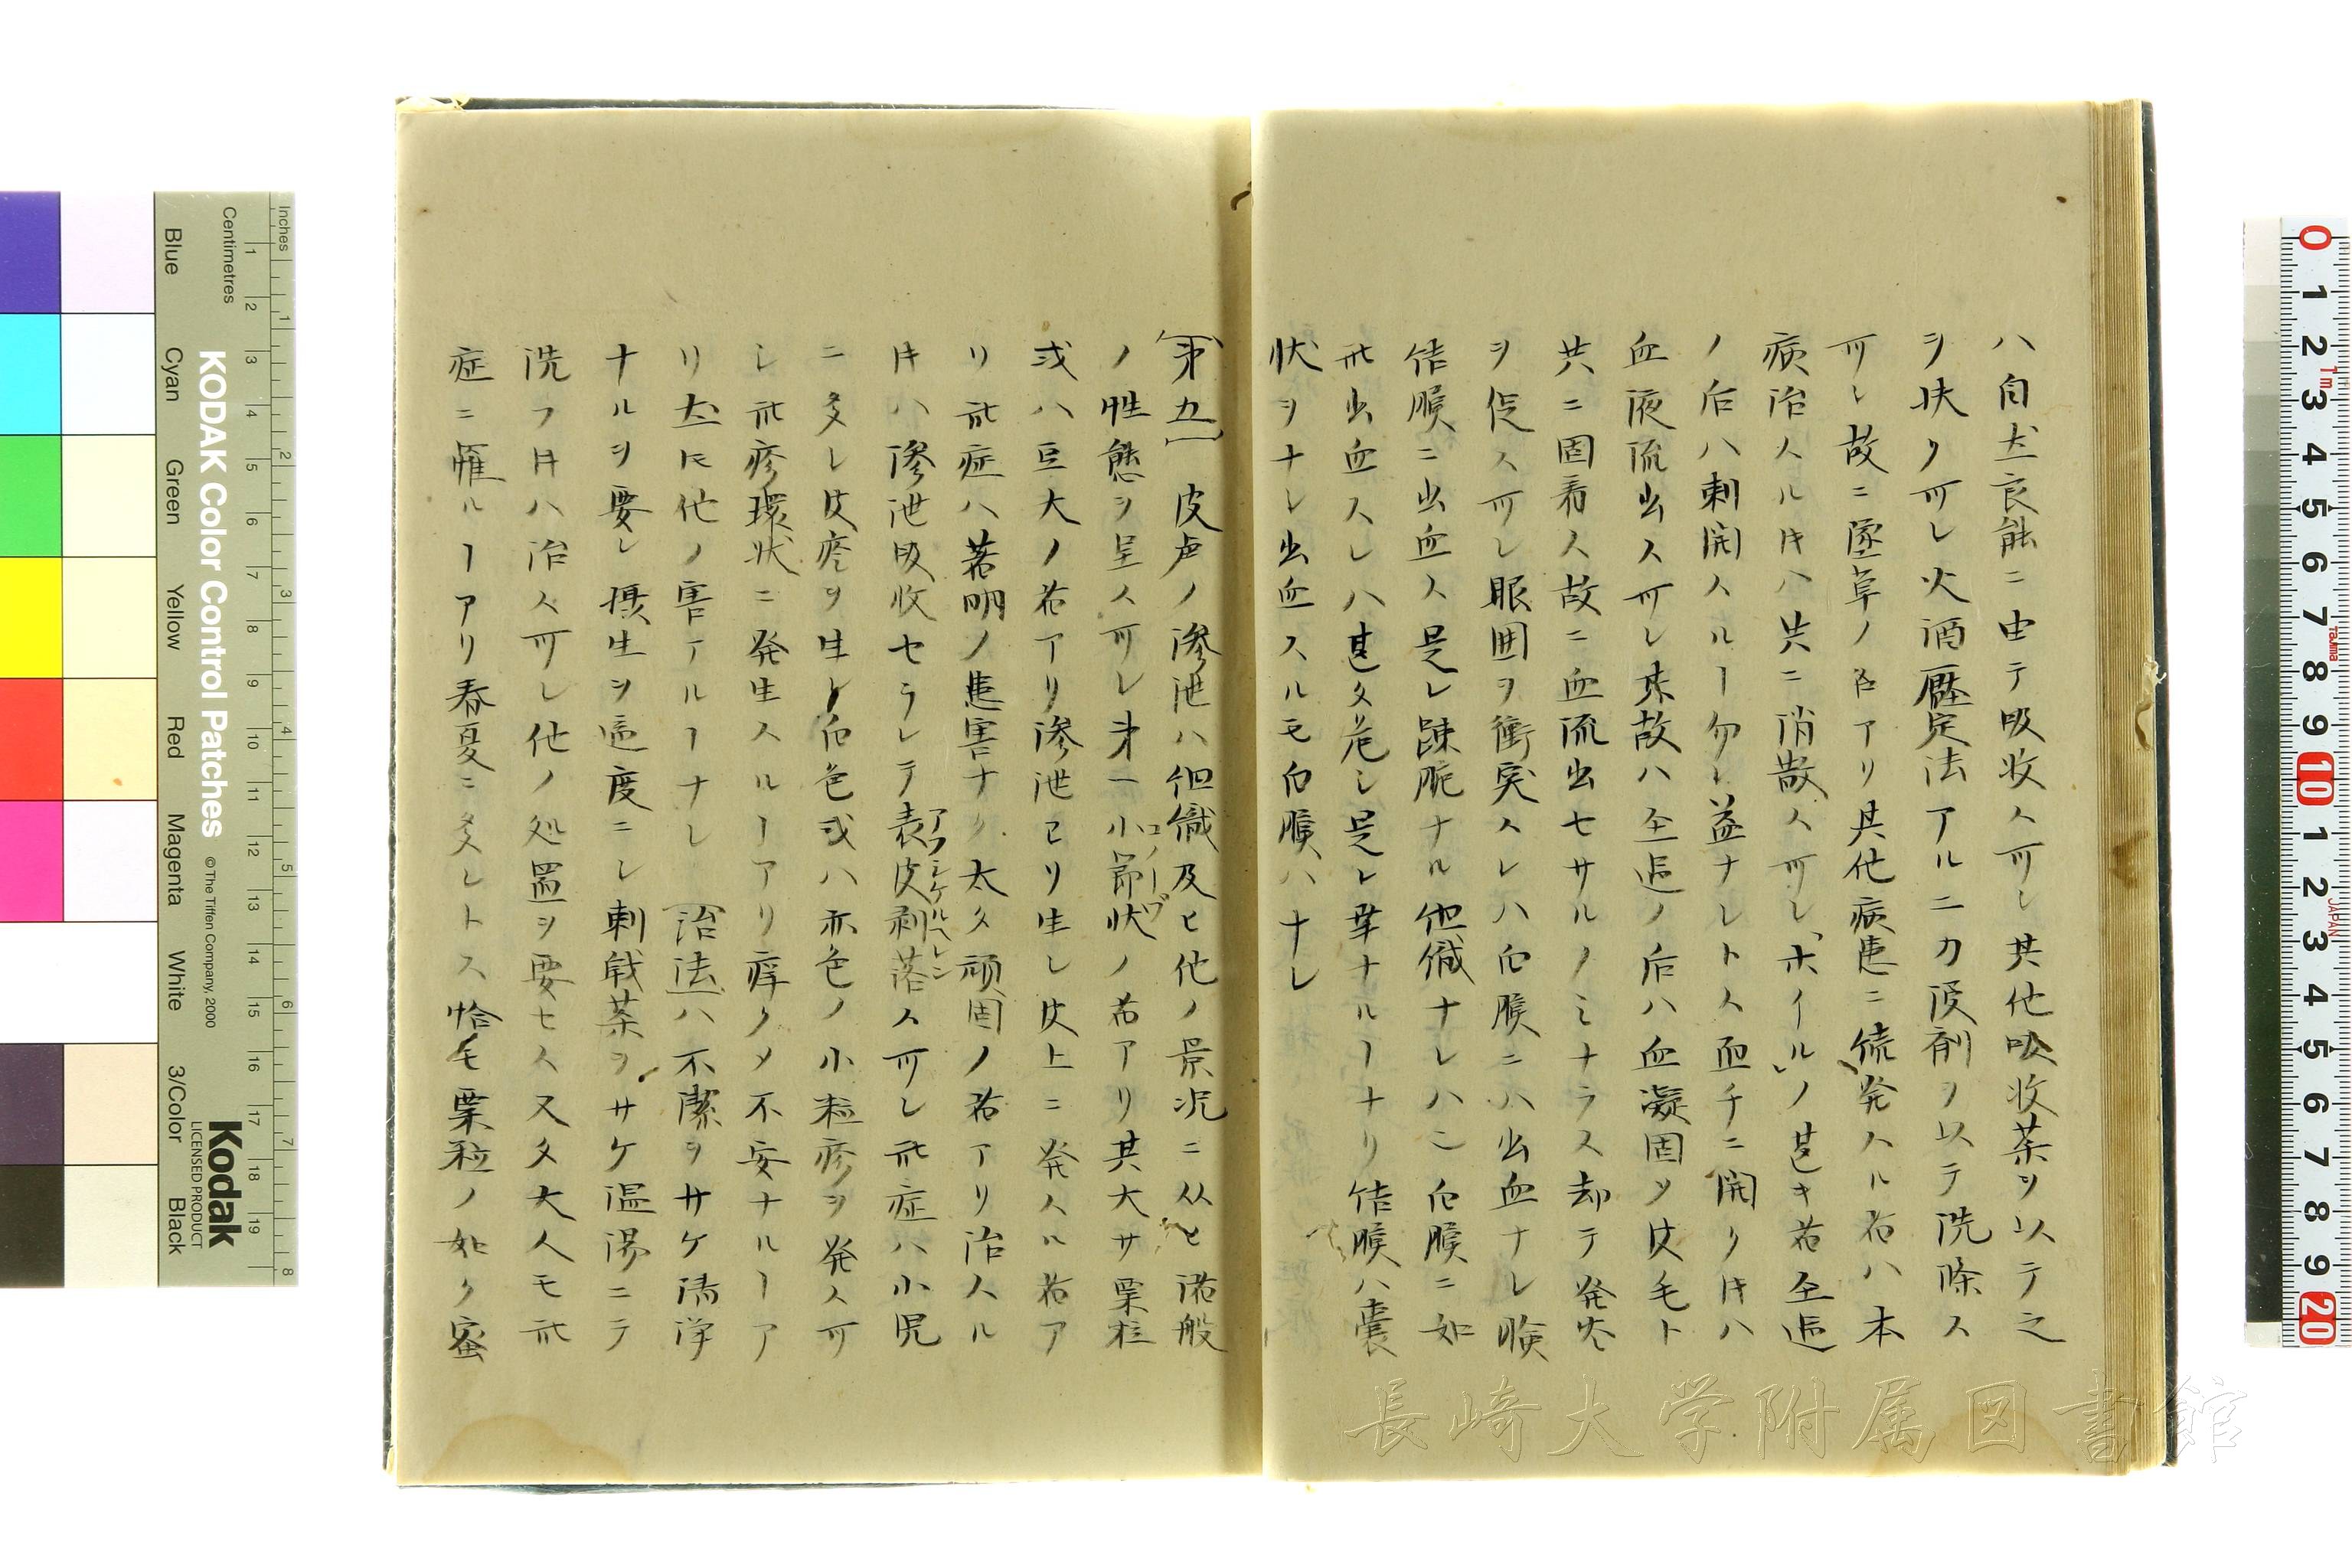 ハ自然良能ニ由テ吸收ス可シ其他吸收薬ヲ以テ之
ヲ扶ク可シ火酒壓定法アルニカ侵剤ヲ以テ洗滌ス
可シ故ニ墜卓ノ名アリ其他病患ニ続発スル者ハ本
病治スルキハ共ニ消散ス可シ「ホイル」ノ甚キ者圣迠
ノ后ハ刺開スルヿ勿レ益ナシトス而チニ開クキハ
血液流出ス可シ其故ハ圣迠ノ后ハ血凝固シ皮毛ト
共ニ固着ス故ニ血流出セサルノミナラス却テ発炎
ヲ促ス可シ眼囲ヲ衝突スレハ白膜ニハ出血ナシ瞼
結膜ニ出血ス是レ踈脆ナル組織ナレハ白膜ニ如
此出血スレハ甚タ危シ是レ幸ナルヿナリ結膜ハ嚢
状ヲナシ出血スルモ白膜ハナシ
第五 皮膚ノ滲泄ハ組織及ヒ他ノ景况ニ从ヒ诸般
ノ性態ヲ呈ス可シ第一小節状ノ者アリ其大サ粟粒
コノーブ
或ハ豆大ノ者アリ滲泄ヨリ生シ皮上ニ発スル者ア
リ此症ハ著明ノ患害ナク太タ頑固ノ者アリ治スル
キハ滲泄吸收セラレテ表皮剥落ス可シ此症ハ小児
アフシケルヘレン
ニ多シ皮疹ヲ生シ白色或ハ赤色ノ小粒疹ヲ発ス可
シ此疹環状ニ発生スルヿアリ痒クメ不安ナルヿア
リ然𪜈他ノ害アルヿナシ 治法ハ不潔ヲサケ清浄
ナルヲ要シ摂生ヲ適度ニシ刺戟薬ヲサケ温湯ニテ
洗フキハ治ス可シ他ノ処置ヲ要セス又タ大人モ此
症ニ罹ルヿアリ春夏ニ多シトス恰モ粟粒ノ如ク蜜
KODAK Color Control Patches
© The Tiffen Company, 2000
Kodak
LICENSED PRODUCT
Inches
Centimetres
Blue Cyan Green Yellow Red Magenta White 3/Color Black
長崎大学附属図書館